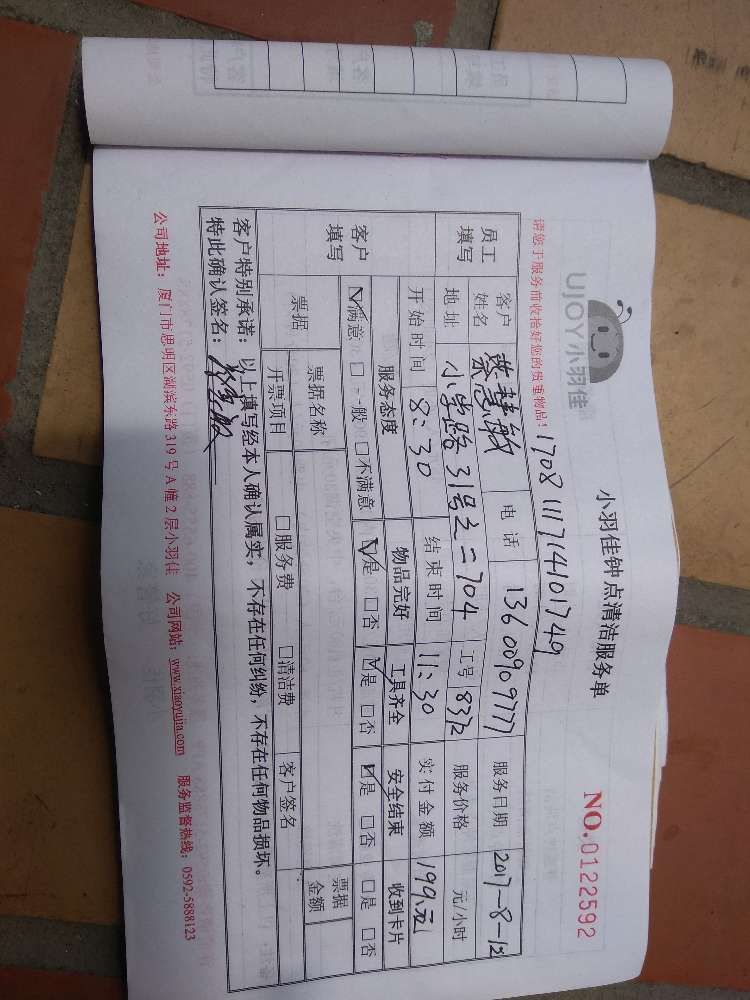 UJOY小羽佳
小羽佳钟点清洁服务单
NO.0122592
请您于服务前收拾好您的贵重物品！
1708111714101749
员工填写 客户姓名 蔡慧敏 电话 13600909777 服务日期 2017-8-12
地址 小学路31号之一704 工号 8372 服务价格 元/小时
客户填写 开始时间 8:30 结束时间 11:30 实付金额 199元
服务态度 物品完好 工具齐全 安全结束 收到卡片
☑满意 □一般 □不满意 ☑是 □否 ☑是 □否 ☑是 □否 □是 □否
票据 票据名称 □服务费 □清洁费 客户签名 票据金额
开票项目
客户特别承诺：以上填写经本人确认属实，不存在任何纠纷，不存在任何物品损坏。
特此确认签名：
公司地址：厦门市思明区湖滨东路319号A幢2层小羽佳 公司网站：www.xiaoyujia.com 服务监督热线：0592-5888123